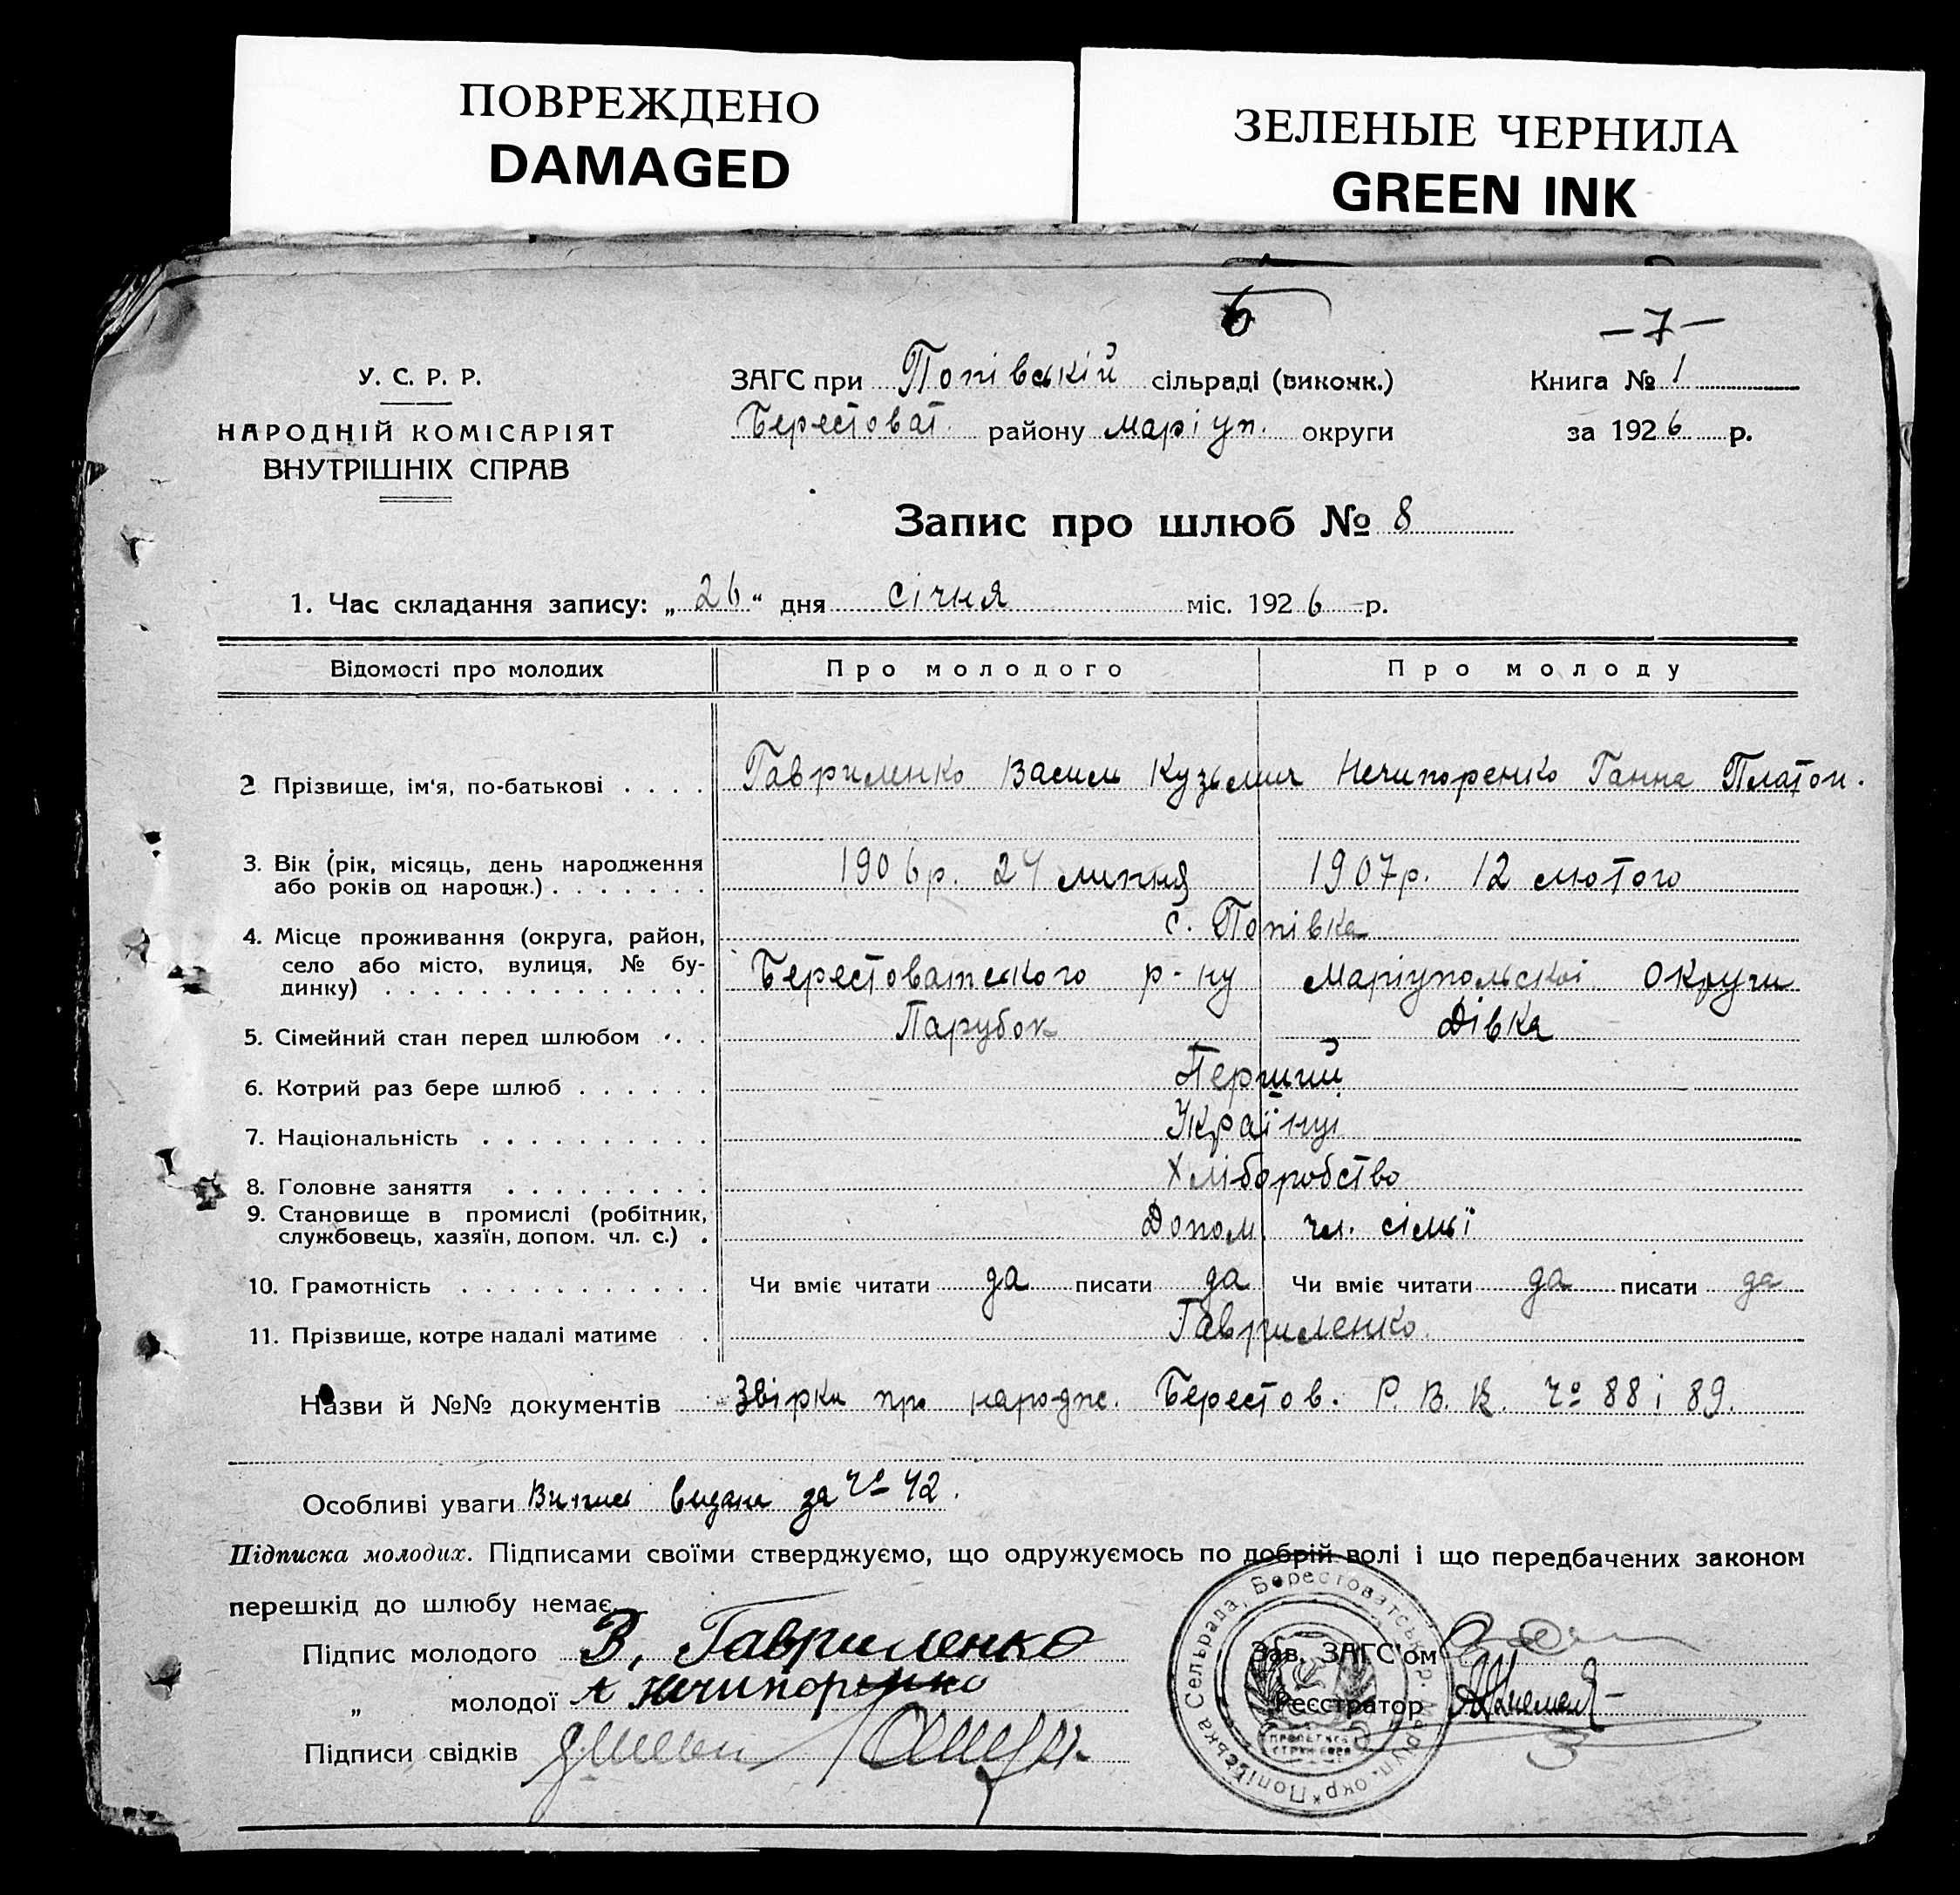 ПОВРЕЖДЕНО
DAMAGED
ЗЕЛЕНЫЕ ЧЕРНИЛА
GREEN INK
6
—7—
У. С. Р. Р.
НАРОДНІЙ КОМІСАРІЯТ
ВНУТРІШНІХ СПРАВ
ЗАГС при Попівській сільраді (виконк.)
Берестоват. району Маріуп. округи
Книга № 1
за 1926 р.
Запис про шлюб № 8
1. Час складання запису: „26“ дня січня міс. 1926 р.
Відомості про молодих Про молодого Про молоду
2 Прізвище, ім'я, по-батькові . . . . Гавриленко Василь Кузьмич Нечипоренко Ганна Платон.
3. Вік (рік, місяць, день народження
або років од народж.) . . . . . . . 1906р. 24 липня 1907р. 12 лютого
с. Попівка
4. Місце проживання (округа, район,
село або місто, вулиця, № бу-
динку) . . . . . . . . . . . . . . Берестоватського р-ну Маріупольської Округи
5. Сімейний стан перед шлюбом . . . Парубок Дівка
6. Котрий раз бере шлюб . . . . . . Перший
7. Національність . . . . . . . . . . Українці
8. Головне заняття . . . . . . . . . Хліборобство
9. Становище в промислі (робітник,
службовець, хазяїн, допом. чл. с.) . Допом. чл. сімьї
10. Грамотність . . . . . . . . . . . Чи вміє читати да писати да Чи вміє читати да писати да
11. Прізвище, котре надалі матиме . Гавриленко
Назви й №№ документів Звірка про народж. Берестов. Р. В. К. Чо 88 і 89.
Особливі уваги Випис видана за Чо 42.
Підписка молодих. Підписами своїми стверджуємо, що одружуємось по добрій волі і що передбачених законом
перешкід до шлюбу немає.
Підпис молодого В. Гавриленко
„ молодої А Нечипоренко
Підписи свідків
Зав. ЗАГС'ом
Реєстратор
Попівська Сельрада, Берестоватськ. р. Маріуп. окр.